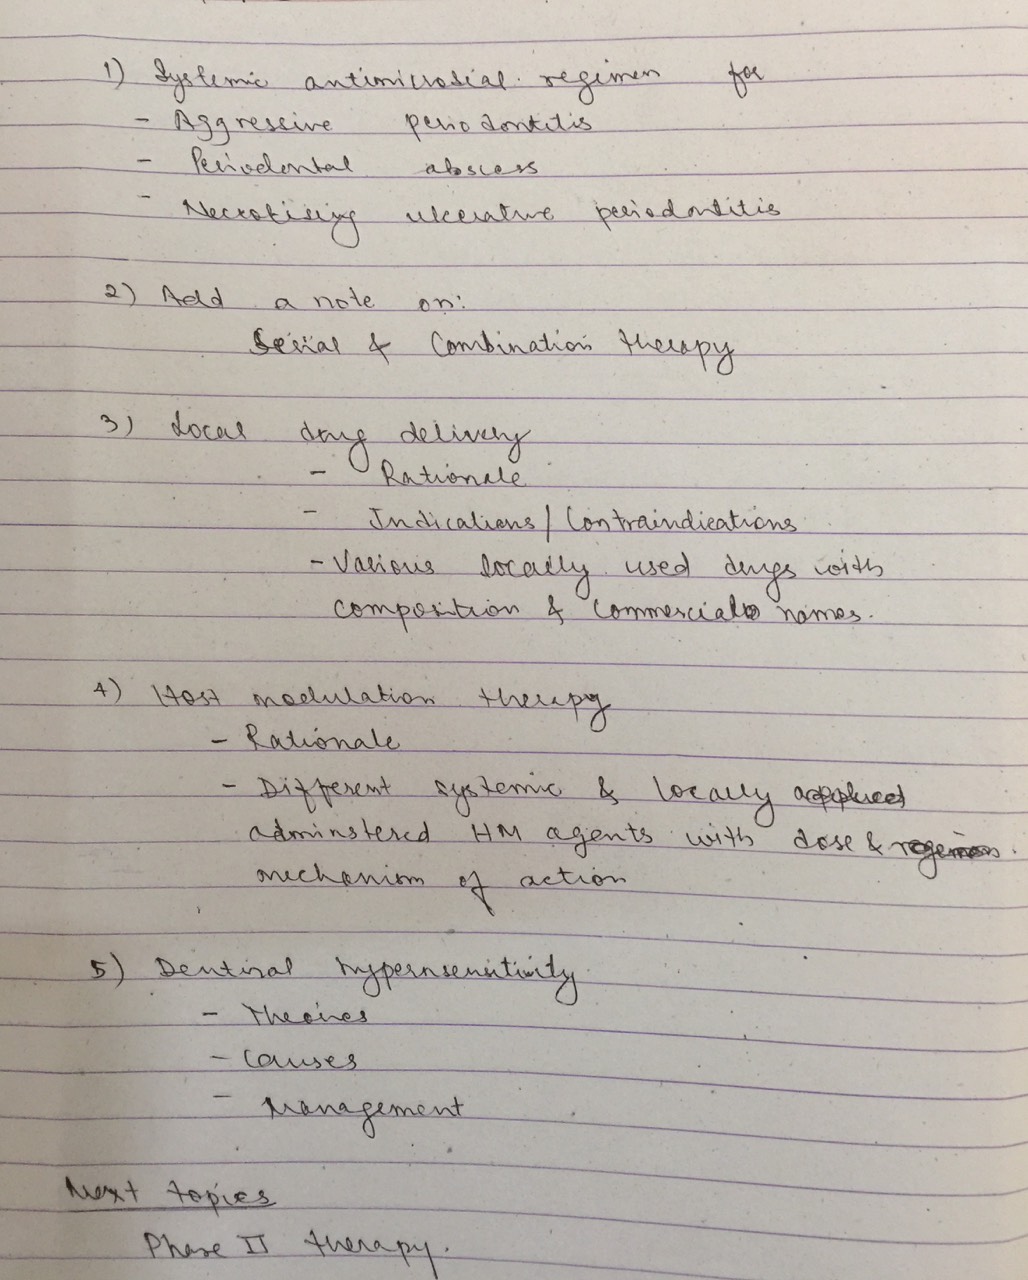 1) Systemic antimicrobial regimen for
- Aggressive periodontitis
- Periodontal abscess
- Necrotising ulcerative periodontitis
2) Add a note on:
Serial & Combination therapy
3) Local drug delivery
- Rationale
- Indications/Contraindications
- Various locally used drugs with
composition & commercial names.
4) Host modulation therapy
- Rationale
- Different systemic & locally applied
adminstered HM agents with dose & regemen.
mechanism of action
5) Dentinal hypernsensitivity
- Theories
- Causes
- Management
Next topics
Phase II therapy.